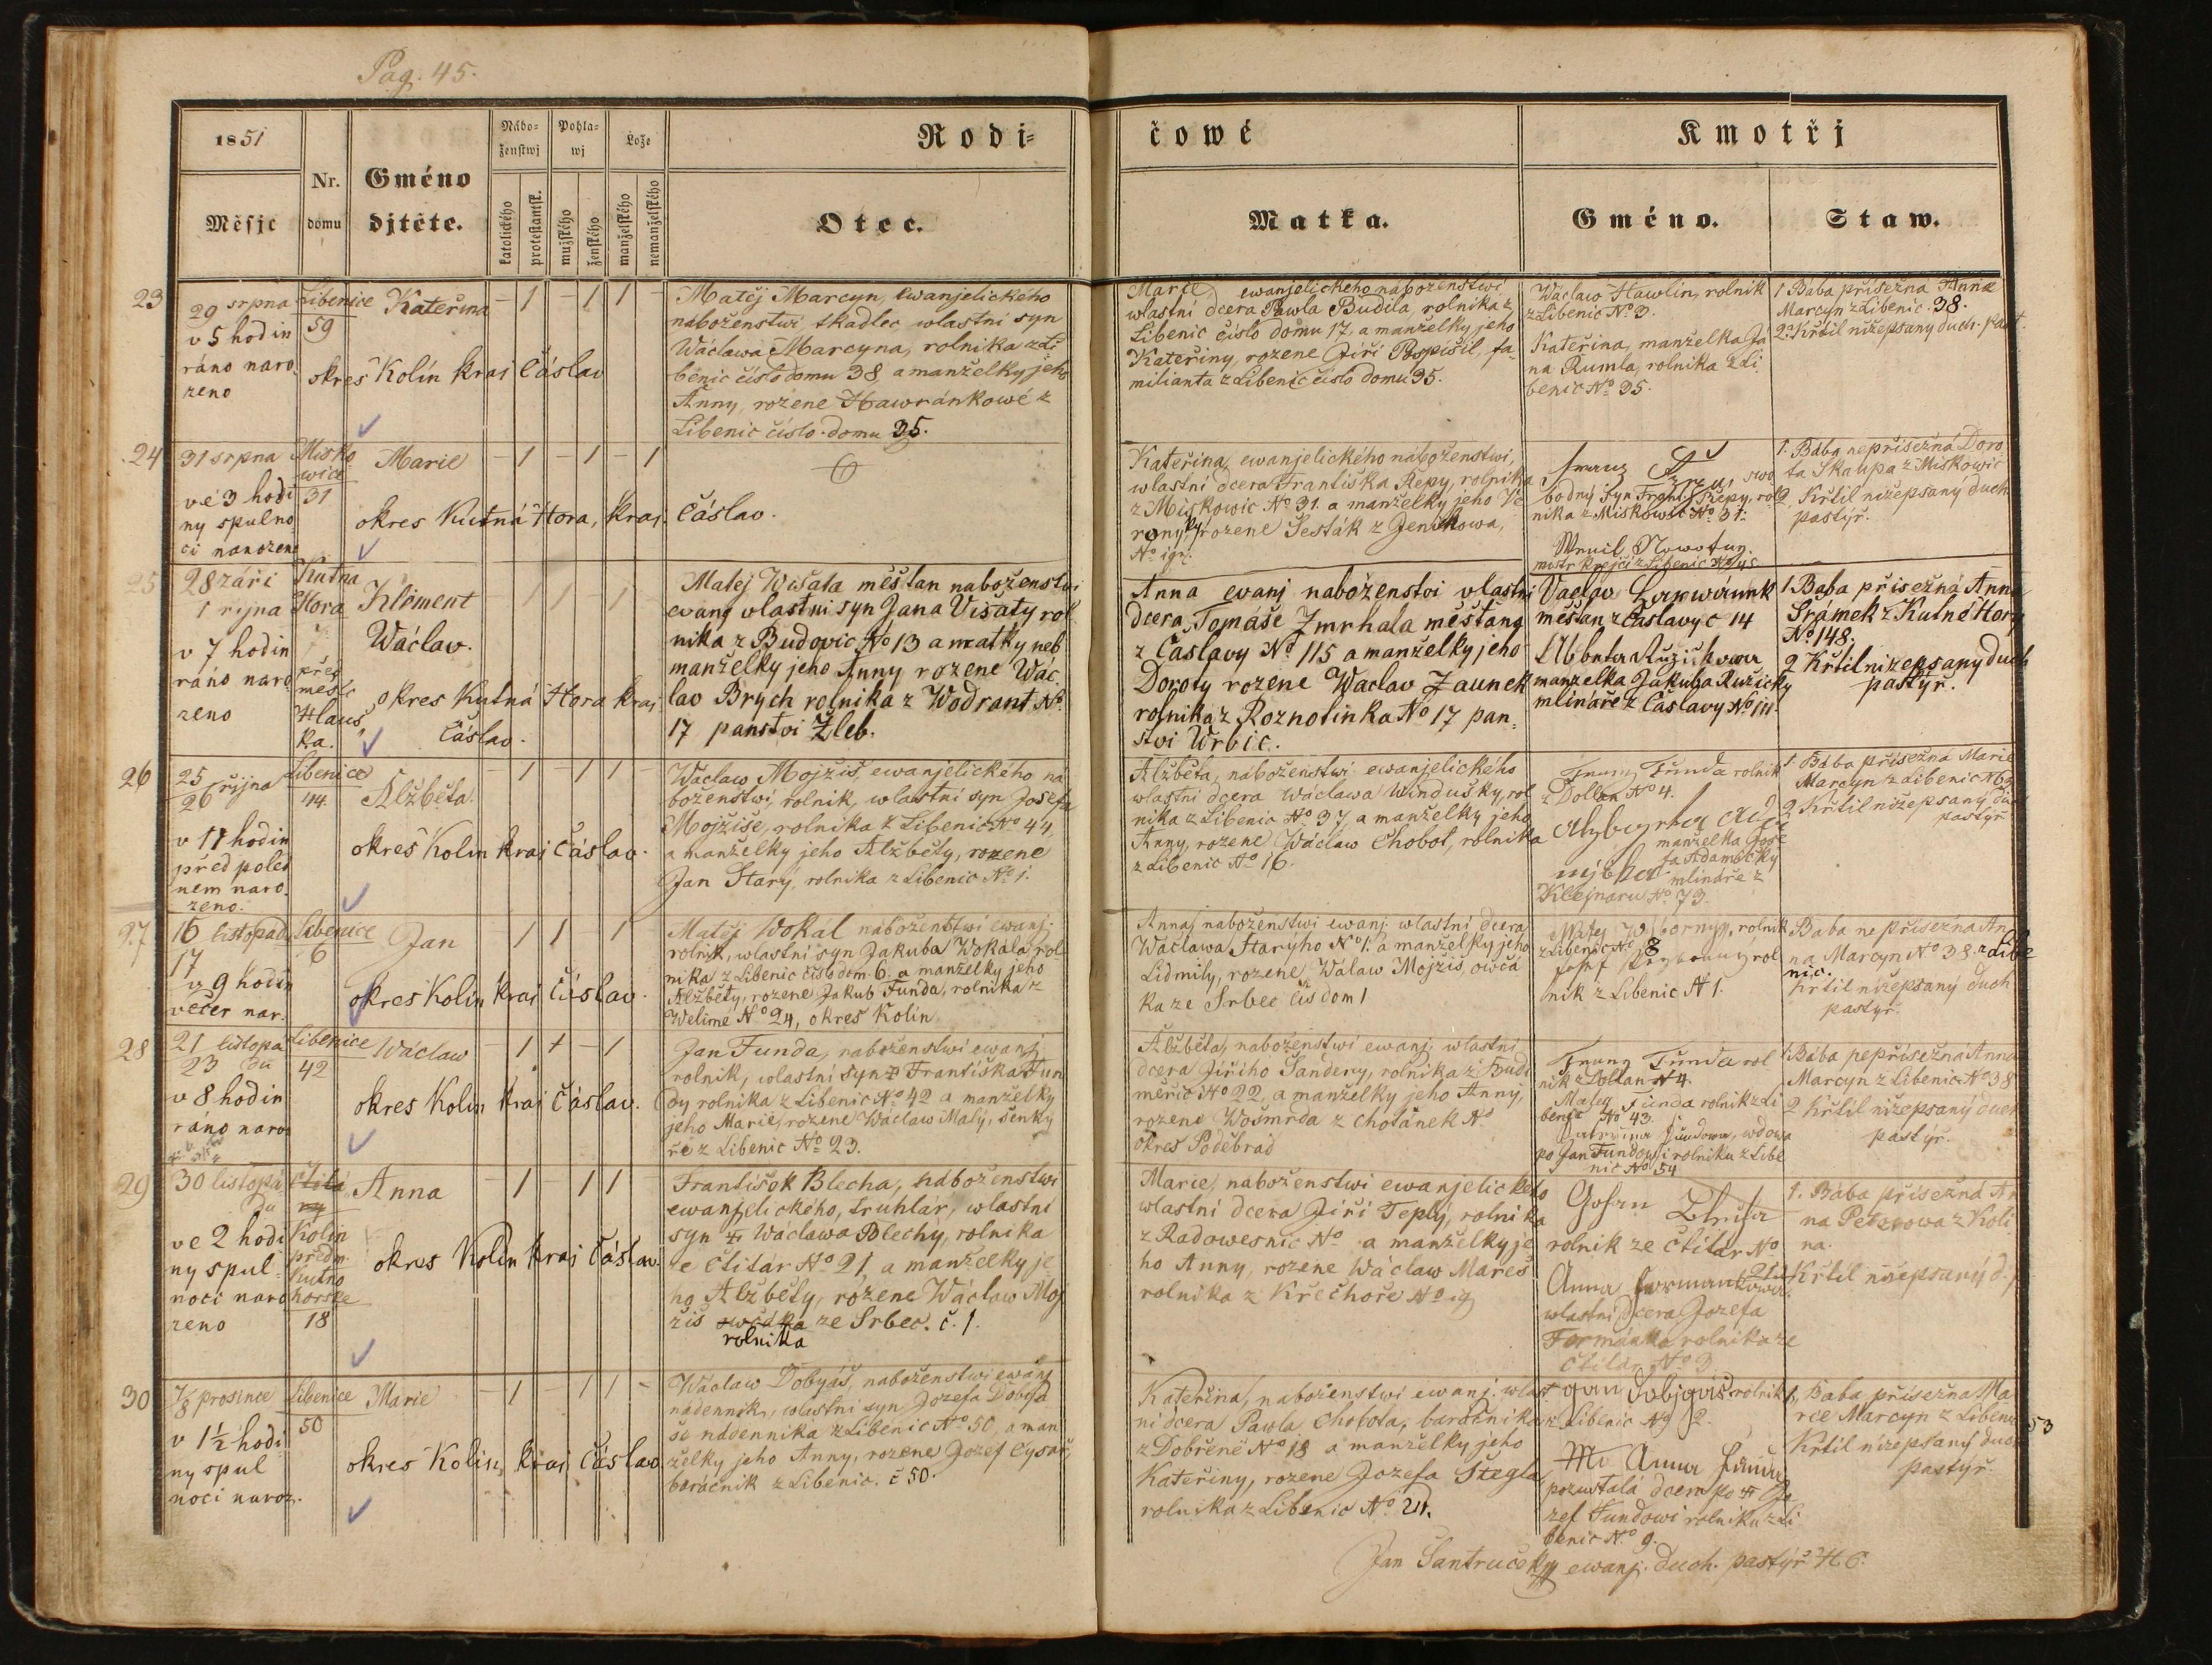 Pag. 45.
1851
Nábo-
ženstwj
Pohla-
wj
Lože
Rodi-
čowé
Kmotřj
Měsjc
Nr.
domu
Gméno
djtěte.
katolického
protestantsk.
mužského
ženského
manželského
nemanželského
Otec.
Matka.
Gméno.
Staw.
23
29 srpna
v 5 hodin
ráno naro
zeno
Libenice
59
Kateřina
- 1 - 1 1 -
okres Kolín kraj Čáslav
Matěj Marcyn, ewanjelického
náboženstwi tkadlec wlastní syn
Wáclawa Marcyna, rolnika z Li
benic číslo domu 38 a manželky jeho
Anny, rozene Hawránkowé z
Libenic číslo domu 35.
Marie, ewanjelického náboženstwi
wlastní dcera Pawla Budila, rolnika z
Libenic číslo domu 17, a manželky jeho
Kateřiny, rozene Jiří Pospíšil, fa-
milianta z Libenic číslo domu 35.
Waclaw Hawlin, rolnik
z Libenic No 3.
Kateřina, manželka Já
na Rumla, rolnika z Li
benic No 35.
1 Bába přísežná Anna
Marcyn z Libenic 38.
2. Křtil nížepsany duch. past.
24
31 srpna
ve 3 hodi
ny spulno
ci narozene
Misko
wice
31
Marie
- 1 - 1 - 1
okres Kutná Hora, kraj Čáslav.
Kateřina, ewanjelického náboženstwi,
wlastni dcera Františka Řepy, rolnika
z Miskowic No 31. a manželky jeho Ve
rony rozene Šesták z Jenikowa,
Franz
bodný syn Frant. Řepy, rol
nika z Miskowic No 31.
Nowotny.
mistr krejčí z Libenic
1. Bába nepřísežná Doro
ta Skaupa z Miskowic
2. Křtil nížepsaný duch
pastýř.
25
28 září
1 října
v 7 hodin
ráno naro
zeno
Kutna
Hora
před
městi
Hlaus
ka.
Klement
Wáclaw.
- 1 1 - 1 -
okres Kutná Hora kraj
Čáslav.
Matej Wišata měštan naboženstvi
evang vlastni syn Jana Višaty rol
nika z Budovic No 13 a matky neb
manželky jeho Anny rozene Wác
lav Brych rolnika z Wodrant No
17 panstvi Žleb.
Anna evanj naboženstvi vlastni
dcera Tomáše Zmrhala měštana
z Čáslavy No 115 a manželky jeho
Doroty rozene Waclav Zaunek
rolnika z Roznotinka No 17 pan-
stvi Wrbic.
Vaclav
mešťan z Čáslavy č 14
manželka Jakuba Ružicky
mlináře z Časlavy No 111
1 Baba přisežná Anna
Šrámek z Kutné Hory
No 148.
2 Křtil nizepsany duch
pastýř.
26
25
26 října
v 11 hodin
před poled
nem naro
zeno.
Libenice
44
Alžběta.
- 1 - 1 1 -
okres Kolin kraj Čáslav.
Wáclaw Mojžíš, ewanjelického ná
boženstwí, rolnik, wlastní syn Josefa
Mojžíše, rolnika z Libenic No 44,
a manželky jeho Alžběty, rozene
Jan Starý, rolnika z Libenic No 1.
Alžběta, náboženstwi ewanjelického
wlastni dcera Wáclawa Windušky, rol
nika z Libenic No 37, a manželky jeho
Anny, rozene Wáclaw Chobot, rolnika
z Libenic No 16.
Franz Funda rolnik
z Dollan No 4.
manželka Jose
fa Adamičky
mlináře z
Klejnaru No 73.
1. Bába přísežná Marie
Marcyn z Libenic
2 Křtil nížepsaný du
pastýř
27
16 listopadu
17
v 9 hodin
večer nar.
Libenice
6
Jan
1 1 1
okres Kolin kraj Čáslav.
Matěj Wokál náboženstwi ewanj.
rolnik, wlastní syn Jakuba Wokála rol
nika z Libenic číslo dom. 6. a manželky jeho
Alžběty, rozene Jakub Funda, rolnika z
Welimě No 24, okres Kolin
Anna, naboženstwi ewanj. wlastní dcera
Wáclawa Staryho No 1. a manželky jeho
Lidmily, rozene Walaw Mojžiš, owčá
ka ze Srbec čis dom 1
rolnik
z Libenic No 8
rol
nik z Libenic No 1.
Baba nepřísežna An
na Marcyn No 38. z Libe
nic.
Křtil nížepsaný duch
pastýř.
28
21 listopa
23 du
v 8 hodin
ráno naro
Libenice
42
Wáclaw
- 1 1 - 1
okres Kolin kraj Čáslav.
Jan Funda, naboženstwi ewanj.
rolnik, wlastní syn Františka Fun
dy rolnika z Libenic No 42 a manželky
jeho Marie, rozene Waclaw Malý, šenký
ře z Libenic No 23.
Alžběta, naboženstwi ewanj. wlastní
dcera Jiřího Šandery, rolnika z Budi
měřic No 22, a manželky jeho Anny,
rozene Wošmrda z Chotánek No
okres Poděbrad
Franz Funda rol
nik z Dollan No 4
Matej Funda rolnik z Li
benic No 43.
Fundowa, wdowa
po Jan Fundowi rolniku z Libe
nic No 54
1 Bába nepřísežná Anna
Marcyn z Libenic No 38
2 Křtil nížepsaný duch
pastýř.
29
30 listopa
du
ve 2 hodi
ny spul
noci naro
zeno
Kolin
předm.
Kutno
horske
18
Anna
- 1 - 1 1
okres Kolin kraj Čáslav
František Blecha, náboženstwi
ewanjelického, truhlár, wlastni
syn Wáclawa Blechy, rolnika
ze Ctitár No 21, a manželky je
ho Alžběty, rozene Wáclaw Moj
žiš owčáka ze Srbec. č. 1.
rolnika
Marie, naboženstwi ewanjelického
wlastni dcera Jiří Teplý, rolnika
z Radowesnic No a manželky je
ho Anny, rozene Wáclaw Mareš
rolnika z Křečhoře No 19
rolnik ze Ctitár No
21
Anna Formankowa
wlastní dcera Jozefa
Formánka rolnika ze
Ctitár No 3
1. Bába přísežná An
na Petrowa z Koli
na.
2 Křtil nížepsaný d. p.
30
7/8 prosince
v 1 1/2 hodi
ny spul
noci naroz.
Libenice
50
Marie
- 1 - 1 1 -
okres Kolin, kraj Čáslav
Waclaw Dobyáš, naboženstwi ewanj
nádennik, wlastní syn Jozefa Dobyá
še nádennika z Libenic No 50, a man
želky jeho Anny, rozene Jozef Cysař,
baráčnik z Libenic. č 50.
Kateřina, naboženstwi ewanj. wlast
ni dcera Pawla Chobota, baráčnika
z Dobřeně No 18 a manželky jeho
Kateřiny, rozene Jozefa Štegla
rolnika z Libenic No 21.
Jan Dobjaš rolnik
z Libenic No 2.
Anna
pozustalá dcera po Jo
zef Fundowi rolniku z Li
benic No 9.
1, Baba přísežna Ma
rce Marcyn z Libenic 53
Křtil nížepsaný duch
pastýř.
Jan Šantruček ewanj. duch. pastýř H. C.